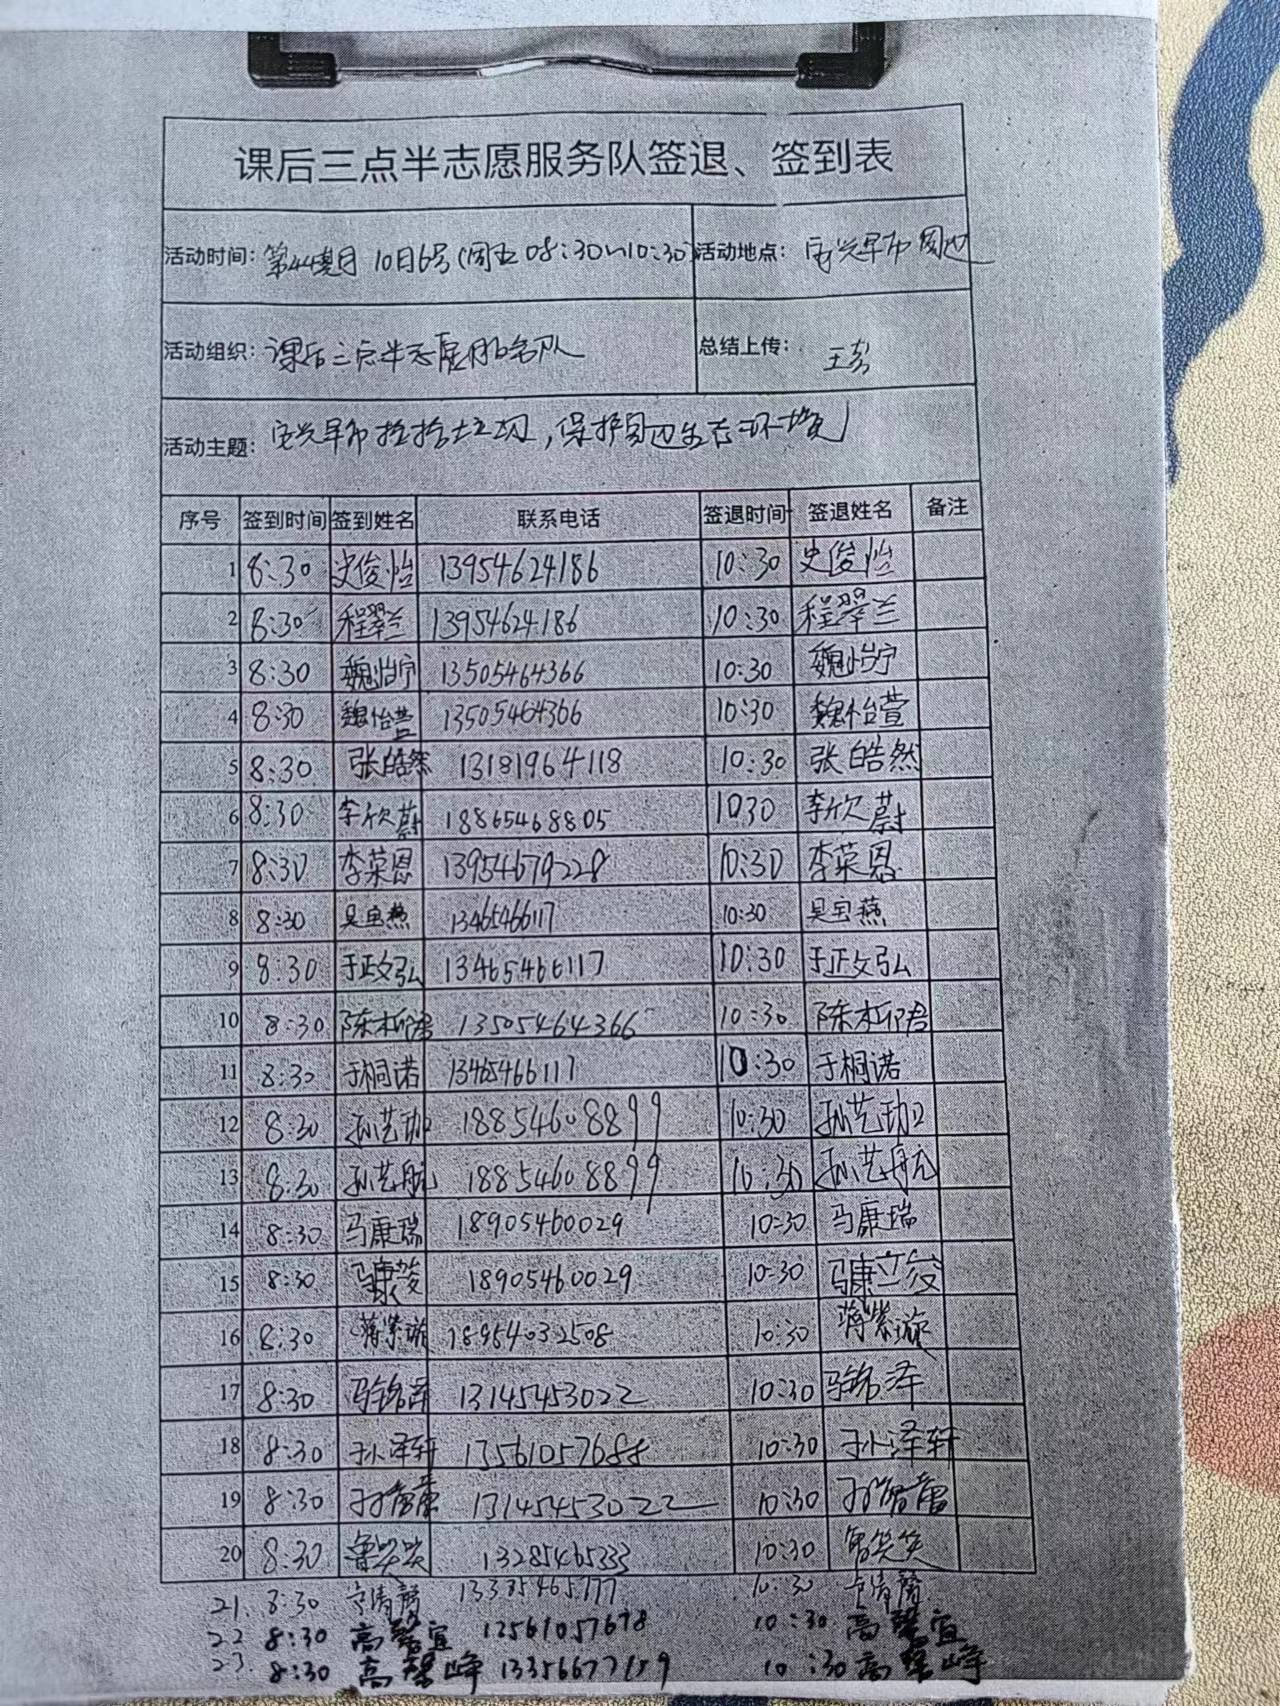 课后三点半志愿服务队签退、签到表
活动时间: 10月6号(周五 08:30~10:30) 活动地点: 宝兴早市周边
活动组织: 课后三点半志愿服务队 总结上传: 王彭
活动主题: 宝兴早市捡拾垃圾,保护周边生态环境
序号 签到时间 签到姓名 联系电话 签退时间 签退姓名 备注
1 8:30 史俊怡 13954624186 10:30 史俊怡
2 8:30 程翠兰 13954624186 10:30 程翠兰
3 8:30 魏怡宁 13505464366 10:30 魏怡宁
4 8:30 魏怡萱 13505464366 10:30 魏怡萱
5 8:30 张皓然 13181964118 10:30 张皓然
6 8:30 李欣蔚 18865468805 1030 李欣蔚
7 8:30 李荣恩 13954679228 10:30 李荣恩
8 8:30 吴宝燕 13465466117 10:30 吴宝燕
9 8:30 于政弘 13465466117 10:30 于政弘
10 8:30 陈柳君 13505464366 10:30 陈柳君
11 8:30 于桐诺 13465466117 10:30 于桐诺
12 8:30 孙艺珈 18854608899 10:30 孙艺珈
13 8:30 孙艺航 18854608899 10:30 孙艺航
14 8:30 马康瑞 18905460029 10:30 马康瑞
15 8:30 18905460029 10:30
16 8:30 蒋紫璇 10:30 蒋紫璇
17 8:30 马铭泽 13145453022 10:30 马铭泽
18 8:30 孙泽轩 13561057688 10:30 孙泽轩
19 8:30 13145453022 10:30
20 8:30 鲁笑笑 13285465333 10:30 鲁笑笑
21. 8:30 10:30
22 8:30 高馨宜 10:30 高馨宜
23. 8:30 13356677159 10:30